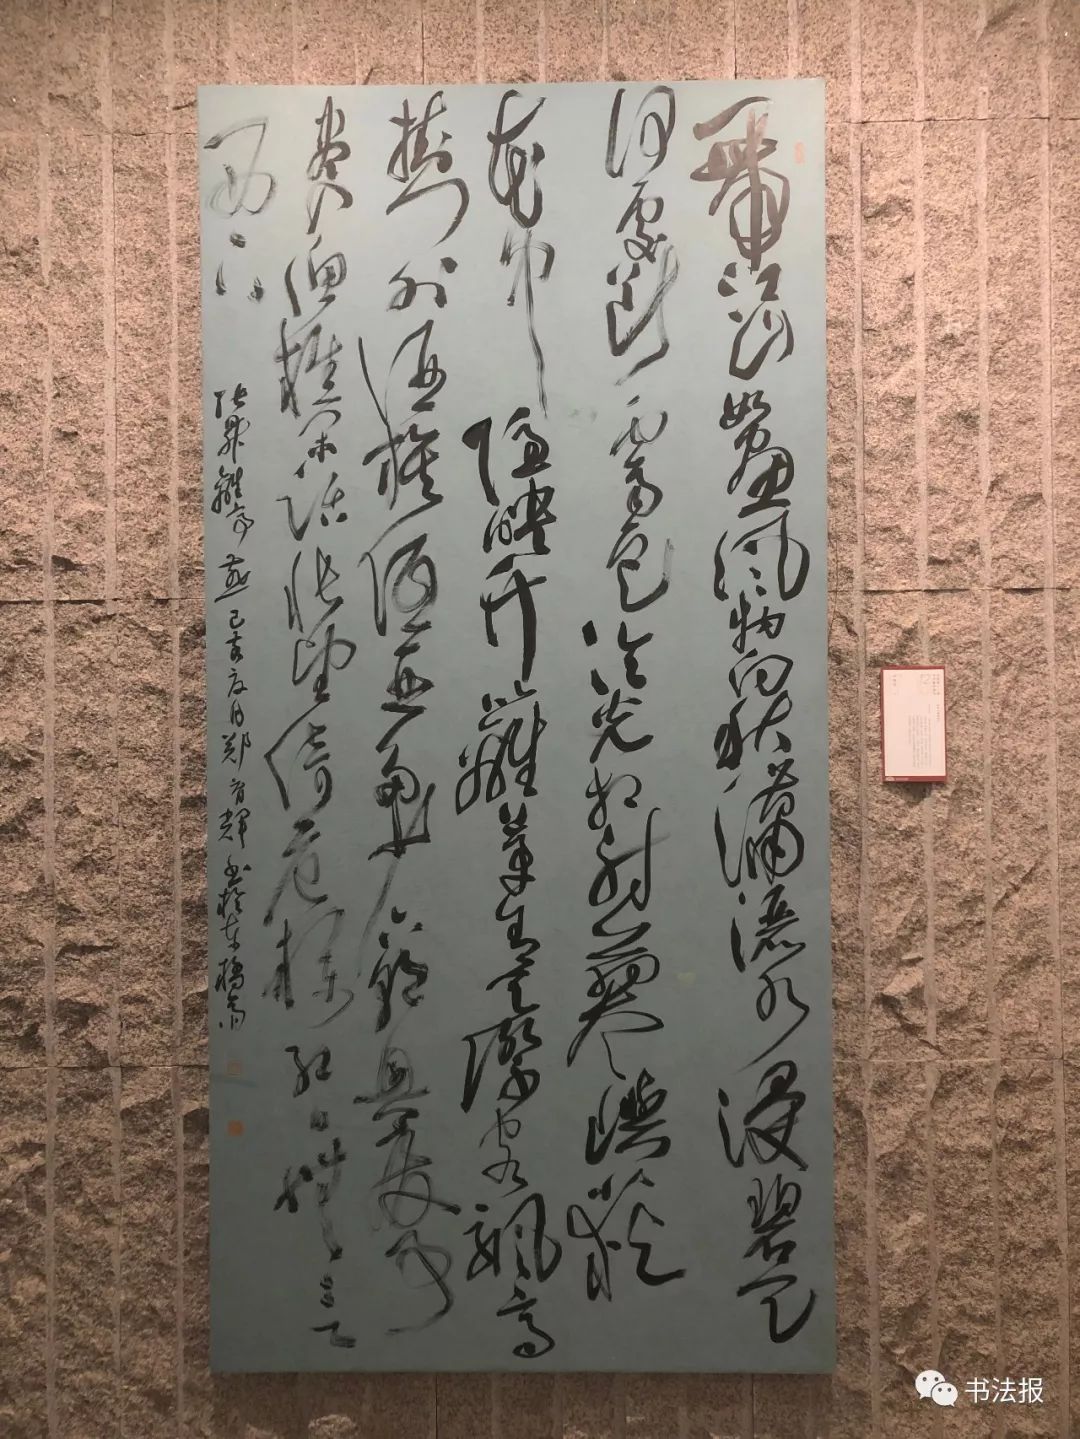 一带江山如画风物向秋潇洒水浸碧天
何处断霁色冷光相射蓼屿荻
花中隐映竹篱茅舍天际客帆高
挂门外酒旗低亚多少六朝兴废事
尽入渔樵闲话怅望倚危栏红日无言
西下
张昪离亭燕 己亥夏月郑
书法报